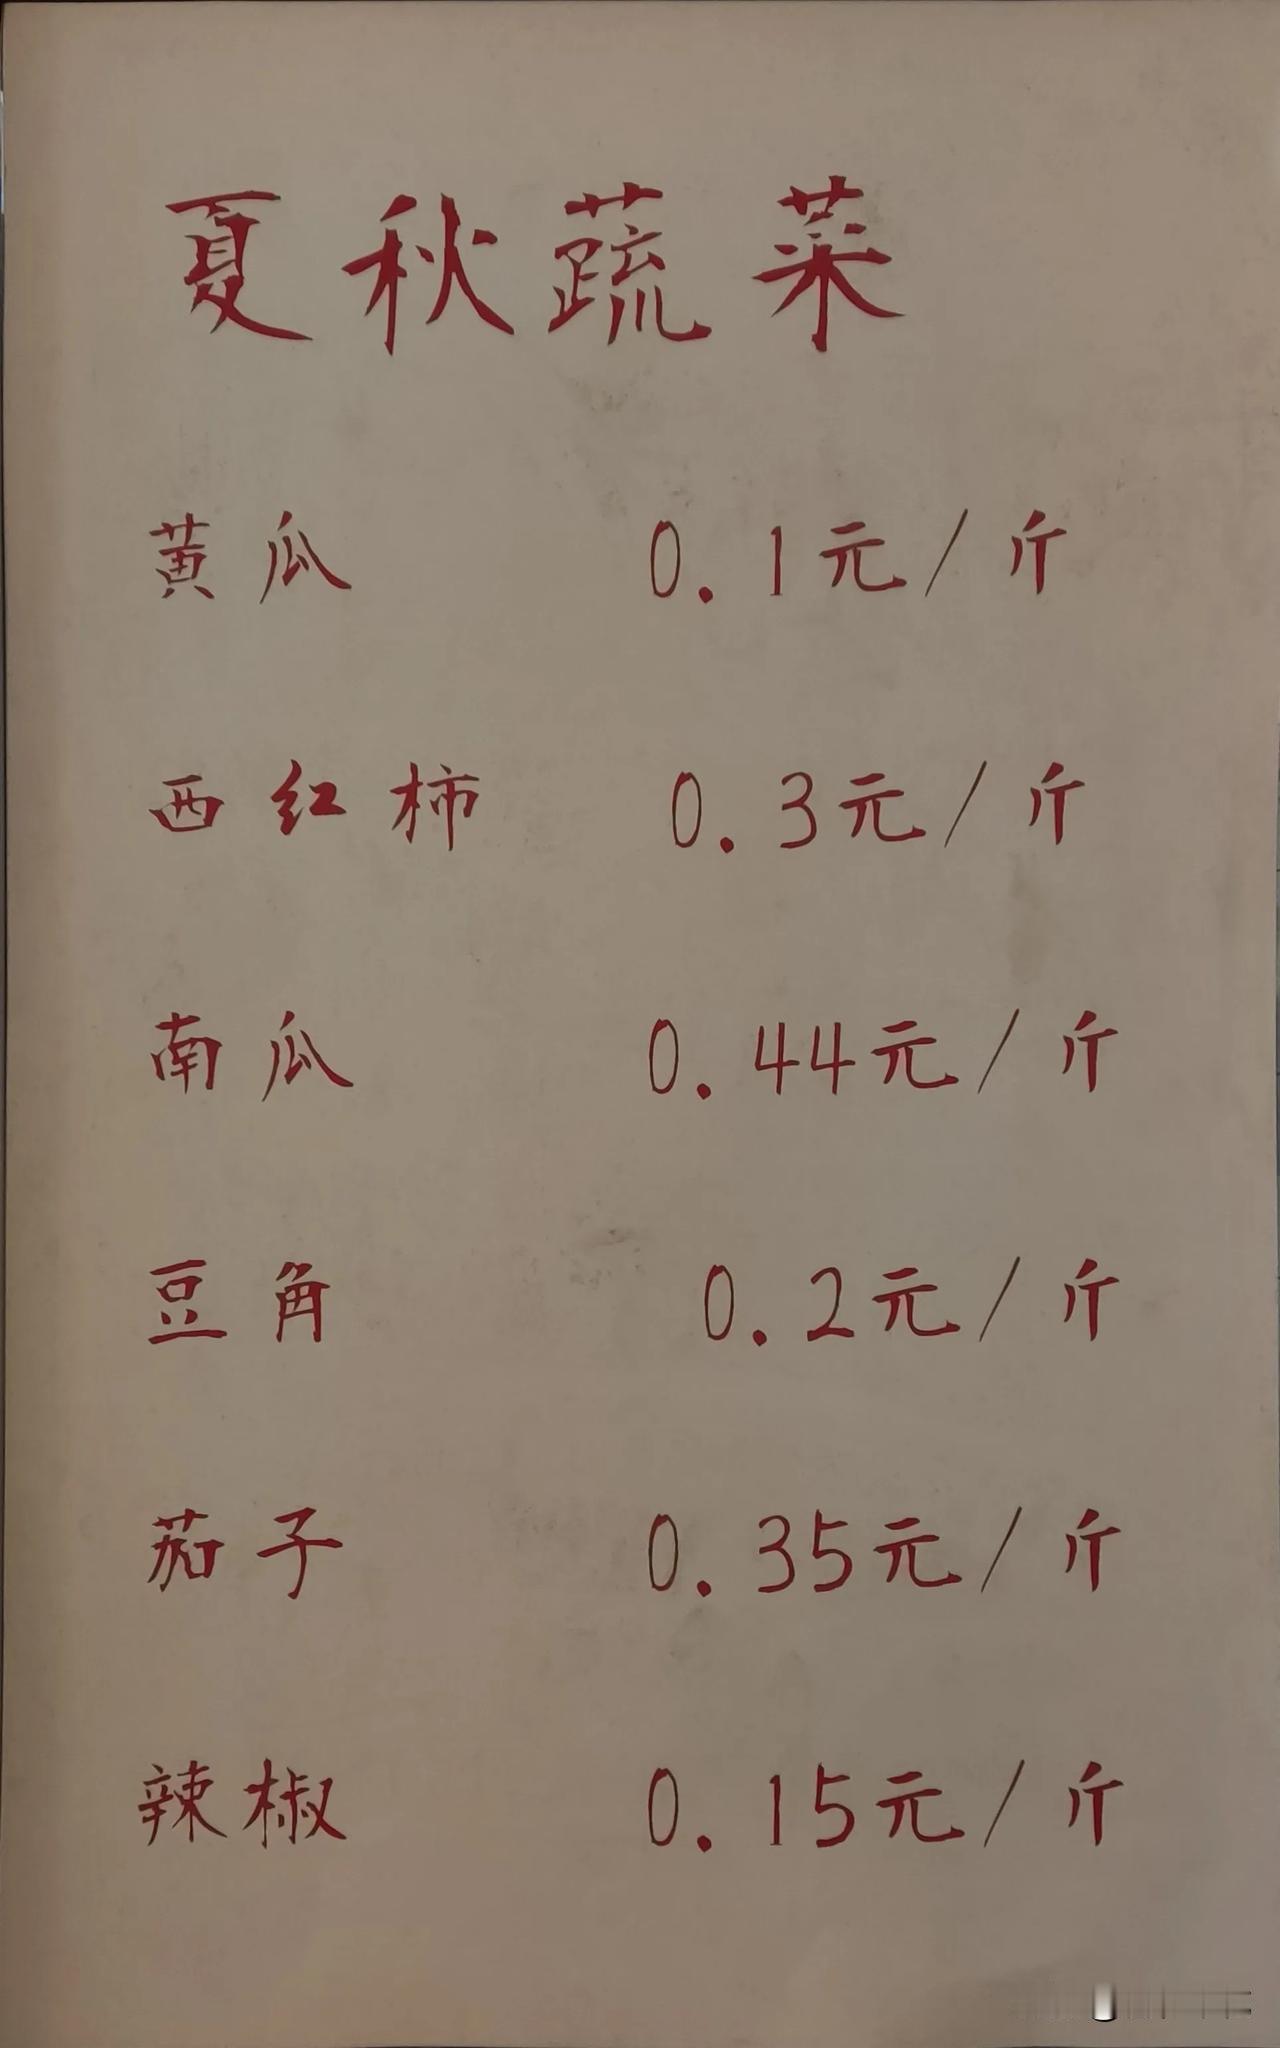 夏秋蔬菜
黄瓜 0.1元/斤
西红柿 0.3元/斤
南瓜 0.44元/斤
豆角 0.2元/斤
茄子 0.35元/斤
辣椒 0.15元/斤